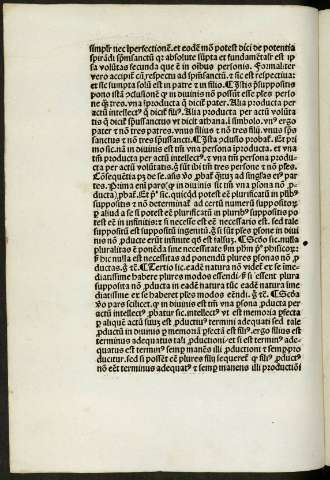 simplr nec īperfectionē. et eodē mō potest dici de potentia
spirādi spm̄sanctū qr absolute sūpta et fundamētalr est ip
sa volūtas secunda que ē in oībus personis. Formaliter
vero accipit cū respectu ad spm̄sanctū. et sic est respectiua:
et sic sumpta solū est in patre et in filio.
pono ista cōclusionē qr in diuinis nō possūt esse ples perso
ne qz tres. vna īproducta qr dicit pater. Alia producta per
actū intellectꝰ qr dicit filiꝰ. Alia producta per actū volūta
tis qr dicit spūssanctus vt dicit athanaꝰ. ī simbolo. vnꝰ ergo
pater et nō tres patres. vnus filius et nō tres filii. vnus spūs
sanctus et nō tres spūssancti. Ista cōclusio probat. Et pri
mo sic. nā in diuinis est tm̄ vna persona īproducta. et vna
tm̄ producta per actū intellectꝰ. et vna tm̄ persona produ
cta per actū volūtatis. g̃ sūt ibi tm̄ tres persone et nō ples.
Cōsequētia pꝫ de se. añs ꝓbat quātū ad singulas eiꝰ par
tes. Prima em̄ pars
ducta) ꝓbat. Et pꝰ sic. quicqd potest eē plurificatū in plibꝰ
suppositis et nō determinat ad certū numerū suppositorū
per aliud a se si potest eē plurificatū in pluribꝰ suppositis po
test eē in infinitis: et si necesse est eē necessario est. sed tale
suppositū est suppositū ingenitū. g̃ si sūt ples persone in diui
nis nō producte erūt infinite qd est falsuꝫ. Scdo sic. nulla
pluralitas ē ponēda sine necessitate
sꝫ hic nulla est necessitas ad ponendū plures personas nō pro
ductas. g̃ etc. Tertio sic. eadē natura nō videt ex se im
ediatissime habere plures modos essendi. sꝫ si essent plura
supposita nō producta in eadē natura tūc eadē natura ime
diatissime ex se haberet ples modos eēndi. g̃ etc. Scda
vo pars scilicet. qr in diuinis est tm̄ vna persona producta per
actū intellectꝰ. ꝓbatur sic. intellectꝰ vt est memoria perfecta
per aliquē actū suuꝫ est productiuꝰ termini adequati sed tale
productū in diuinis per memoriā perfectā est filiꝰ. ergo filius est
terminus adequatus tali productioni. et si est terminꝰ ade
quatus est terminꝰ semper manēs illi productioni et semper pro
ducitur. sed si possēt eē plures filij sequeret qr filiꝰ productꝰ
nō eēt terminꝰ adequatꝰ et semper manens illi productioni